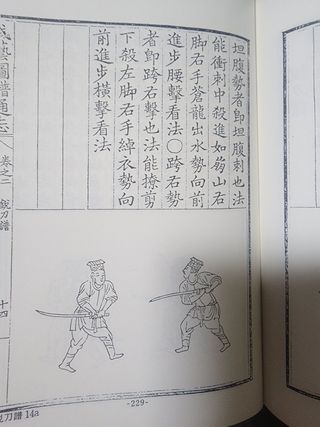 坦腹勢者卽坦腹刺也法
能衝刺中殺進如崩山右
脚右手蒼龍出水勢向前
進步腰擊看法〇跨右勢
者卽跨右擊也法能撩剪
下殺左脚右手綽衣勢向
前進步橫擊看法
武藝圖譜通志 卷之二 銳刀譜 十四
-229-
銳刀譜 14a